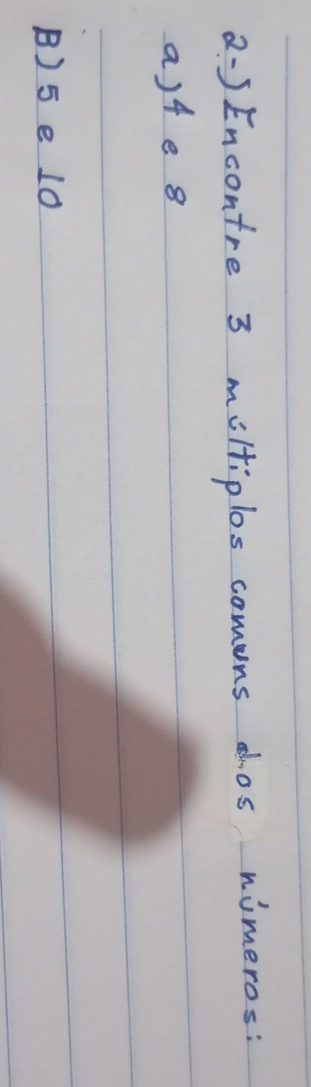 2-) Encontre 3 múltiplos comuns dos números:
a) 4 e 8
B) 5 e 10